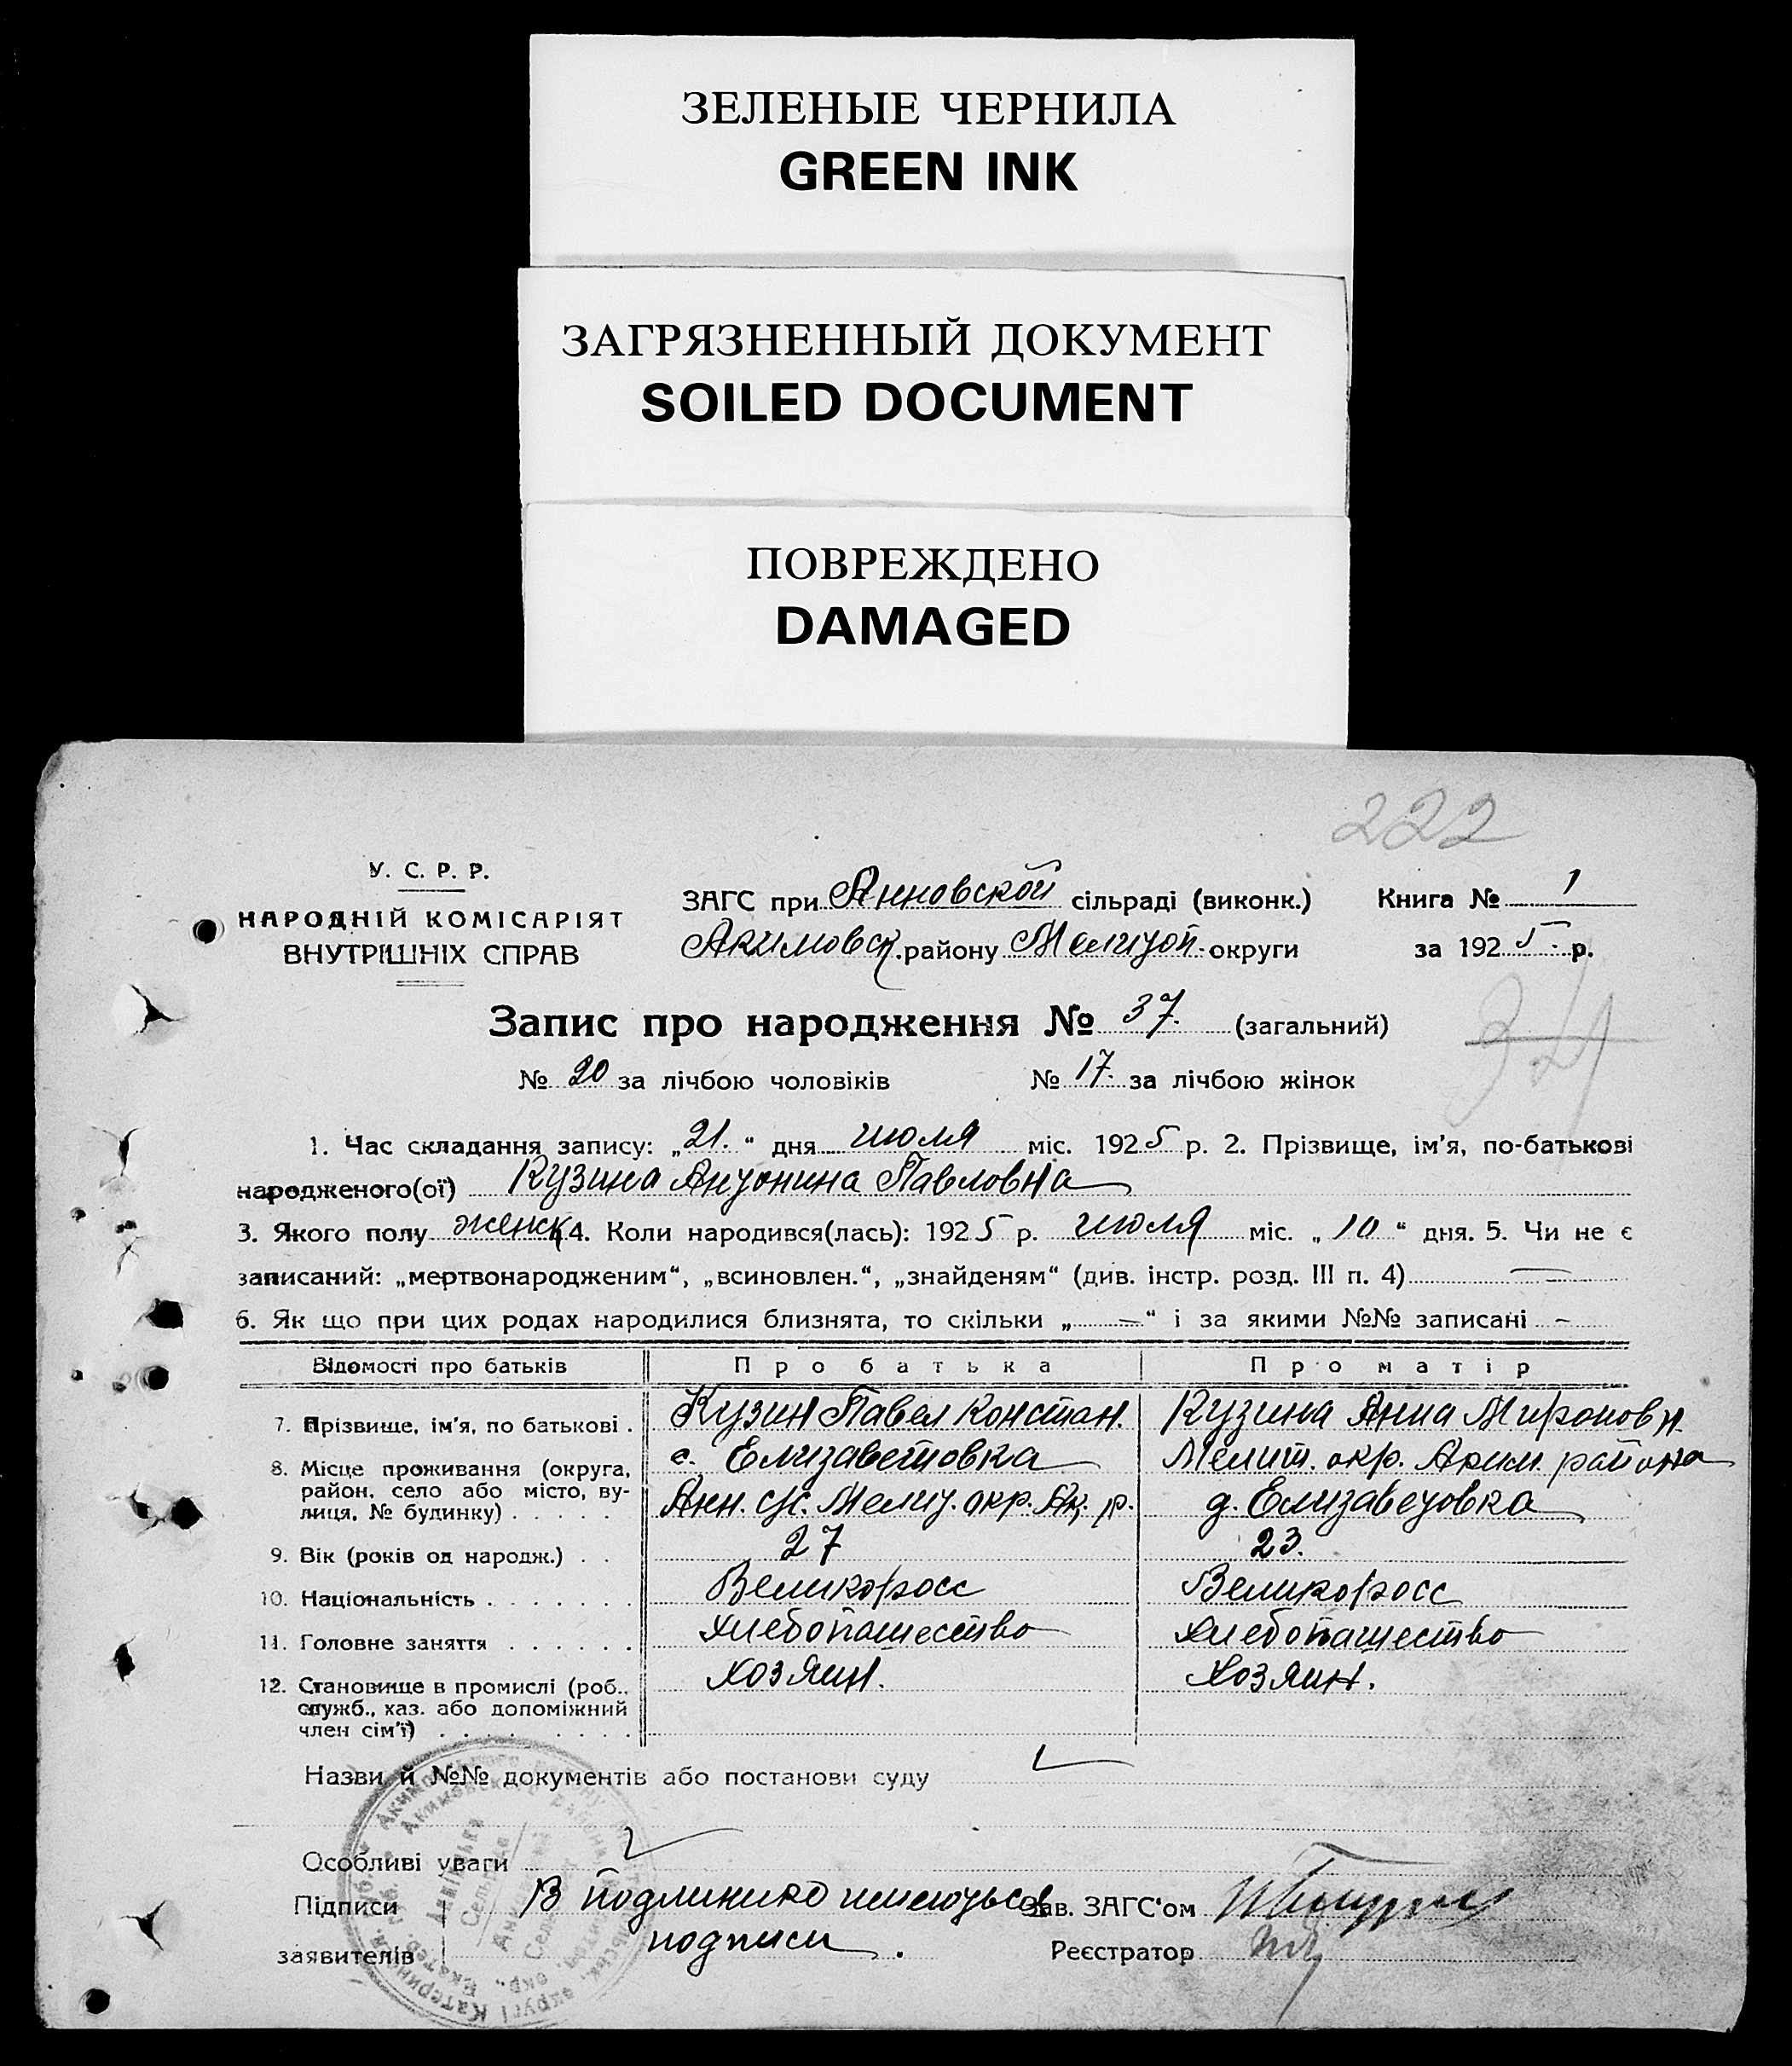 ЗЕЛЕНЫЕ ЧЕРНИЛА
GREEN INK
ЗАГРЯЗНЕННЫЙ ДОКУМЕНТ
SOILED DOCUMENT
ПОВРЕЖДЕНО
DAMAGED
222
У. С. Р. Р.
НАРОДНІЙ КОМІСАРІЯТ
ВНУТРІШНІХ СПРАВ
ЗАГС при Анновской сільраді (виконк.) Книга № 1
Акимовск. району Мелитоп. округи за 1925 р.
Запис про народження № 37. (загальний)
№ 20 за лічбою чоловіків № 17. за лічбою жінок
1. Час складання запису: „21.“ дня июля міс. 1925 р. 2. Прізвище, ім'я, по-батькові
народженого(ої) Кузина Антонина Павловна
3. Якого полу женск 4. Коли народився(лась): 1925 р. июля міс. „10“ дня. 5. Чи не є
записаний: „мертвонародженим“, „всиновлен.“, „знайденям“ (див. інстр. розд. III п. 4) —
6. Як що при цих родах народилися близнята, то скільки „—“ і за якими №№ записані —
Відомості про батьків Про батька Про матір
7. Прізвище, ім'я, по батькові . Кузин Павел Констан. Кузина Анна Мироновн.
8. Місце проживання (округа, район, село або місто, вулиця, № будинку) . . . . . с. Елизаветовка Мелит. окр. Аким. района
Анн. с/с. Мелит. окр. Ак. р. д. Елизаветовка
9. Вік (років од народж.) . . 27 23.
10. Національність . . . . . . . Великоросс Великоросс
11. Головне заняття . . . . . . Хлебопашество Хлебопашество
12. Становище в промислі (роб., служб., хаз. або допоміжний член сім'ї) Хозяин. Хозяин.
Назви й №№ документів або постанови суду
Особливі уваги
Підписи В подлинике имеютьса Зав. ЗАГС'ом
заявителів подписи . Реєстратор